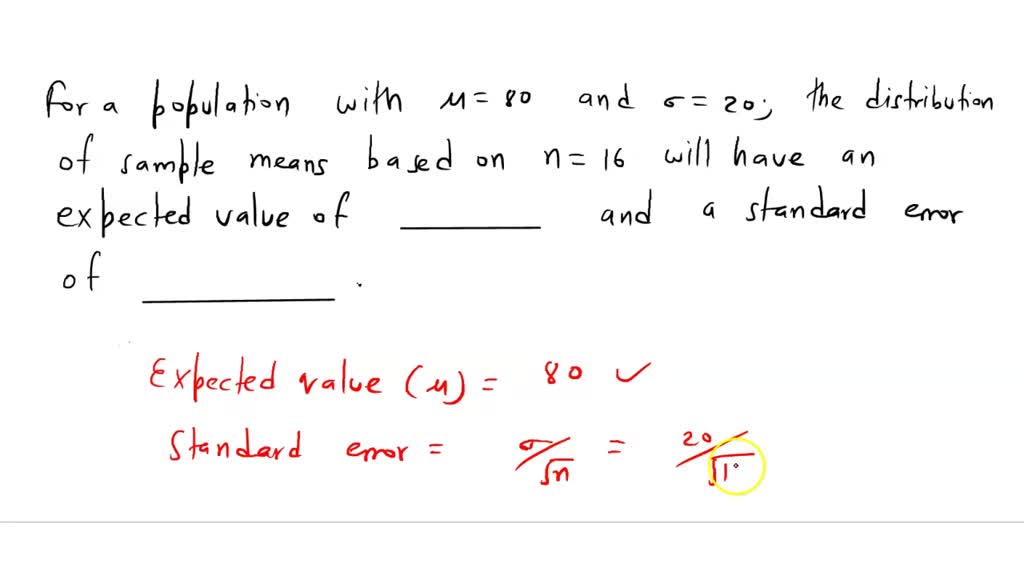 for a population with μ = 80 and σ = 20; the distribution
of sample means based on n = 16 will have an
expected value of ________ and a standard error
of ________ .
Expected value (μ) = 80 ✓
Standard error = σ/√n = 20/√1